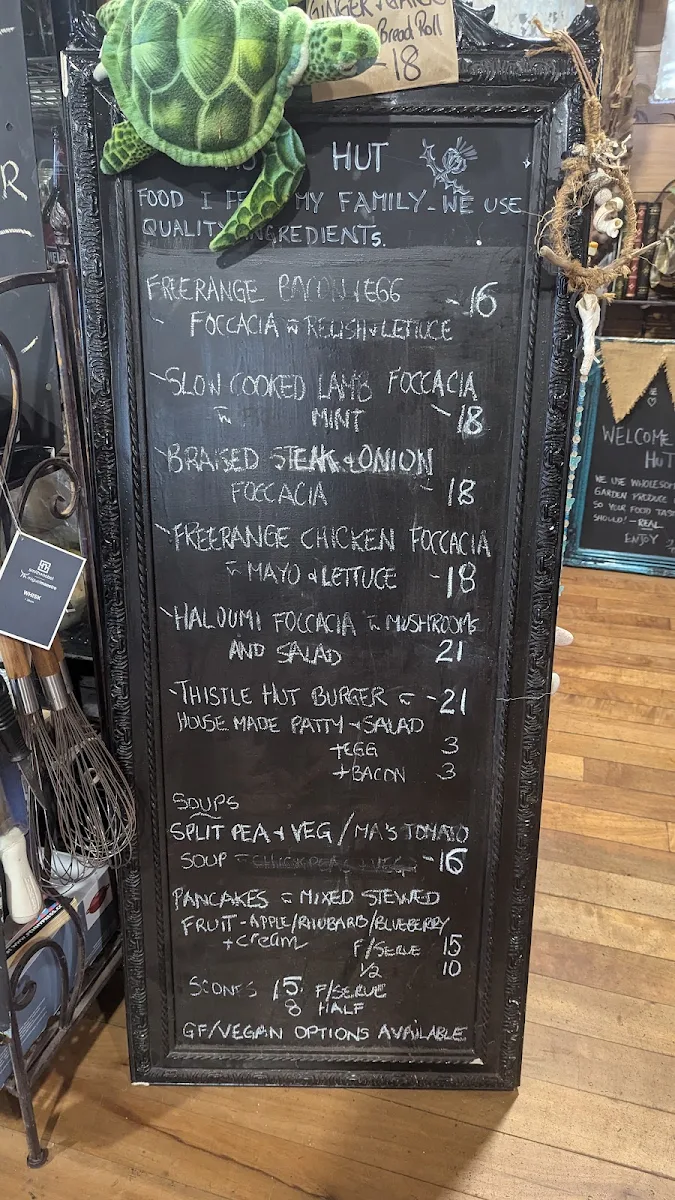 GINGER
Bread Roll
-18
HUT
FOOD I MY FAMILY - WE USE
QUALITY INGREDIENTS.
FREERANGE BACON & EGG -16
FOCCACIA w RELISH & LETTUCE
SLOW COOKED LAMB FOCCACIA
w MINT -18
BRAISED STEAK & ONION
FOCCACIA -18
FREERANGE CHICKEN FOCCACIA
w MAYO & LETTUCE -18
HALOUMI FOCCACIA w MUSHROOMS
AND SALAD 21
THISTLE HUT BURGER w -21
HOUSE MADE PATTY & SALAD
+EGG 3
+BACON 3
SOUPS
SPLIT PEA & VEG / MA'S TOMATO
SOUP -16
PANCAKES w MIXED STEWED
FRUIT - APPLE/RHUBARB/BLUEBERRY
+ cream F/SERVE 15
1/2 10
SCONES 15 F/SERVE
8 HALF
GF/VEGAN OPTIONS AVAILABLE
WHISK
WELCOME
HUT
WE USE WHOLESOM
GARDEN PRODUCE
SO YOUR FOOD TAS
SHOULD! - REAL
ENJOY
R